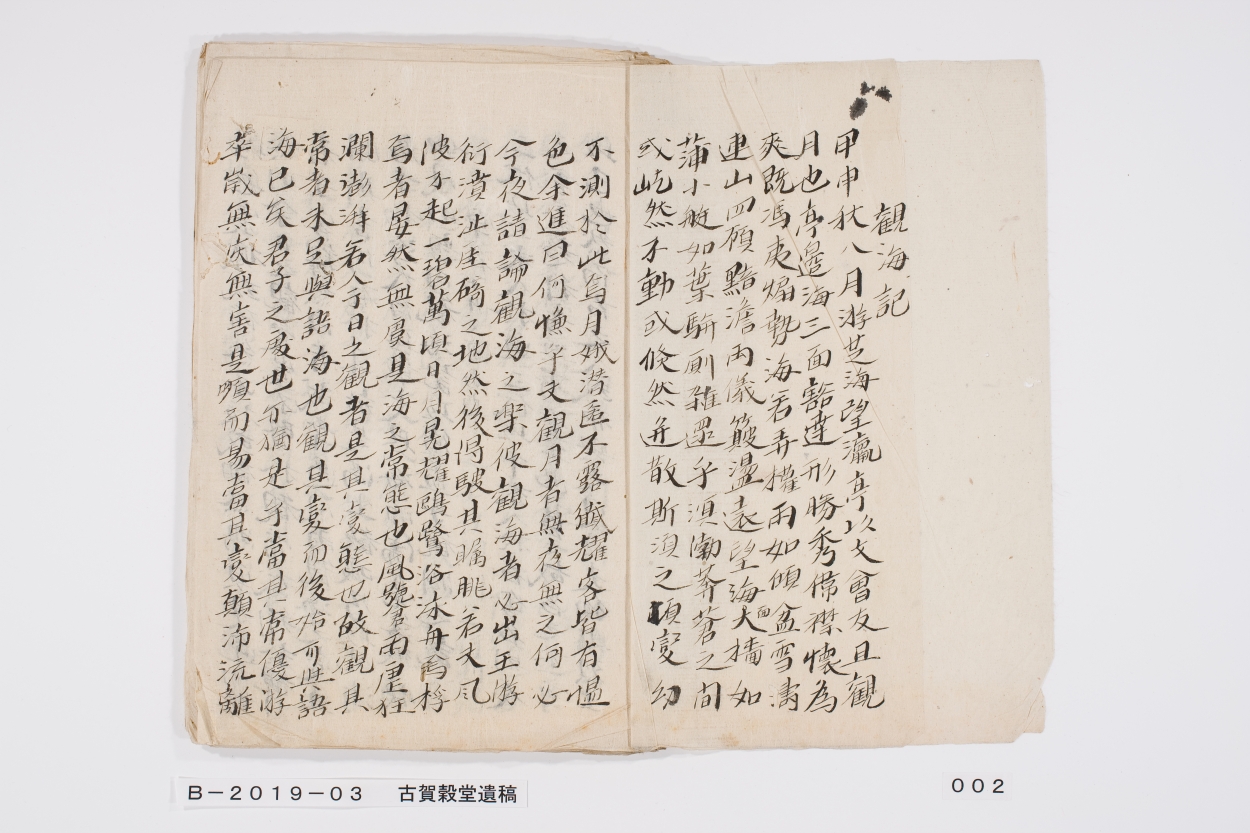 觀海記
甲申秋八月游芝海望瀛亭以文會友且觀
月也亭邊海三面豁達形勝秀偉襟懷為
爽既馮夷煽勢海若弄權雨如傾盆雪濤
連山四顧黯澹兩儀簸盪遠望海面大檣如
蒲小艇如葉駢廁雜遝乎澒㵧莽蒼之間
或屹然不動或倏然迸散斯須之頃變幻
不測於此焉月娥潛匿不露纖耀客皆有慍
色余進曰何憮乎夫觀月者無夜無之何必
今夜請論觀海之樂彼觀海者必出王游
衍濆沚崖碕之地然後得騁其矚眺若夫風
波不起一碧萬頃日月晃耀鷗鷺浴沐舟為桴
焉者晏然無虞是海之常態也風號雨壓狂
瀾澎湃若今日之觀者是其變態也故觀其
常者未足與語海也觀其變而後始可與語
海已矣君子之處世亦猶是乎當其常優游
卒歲無災無害是順而易當其變顛沛流離
B－２０１９－０３　古賀穀堂遺稿
００２